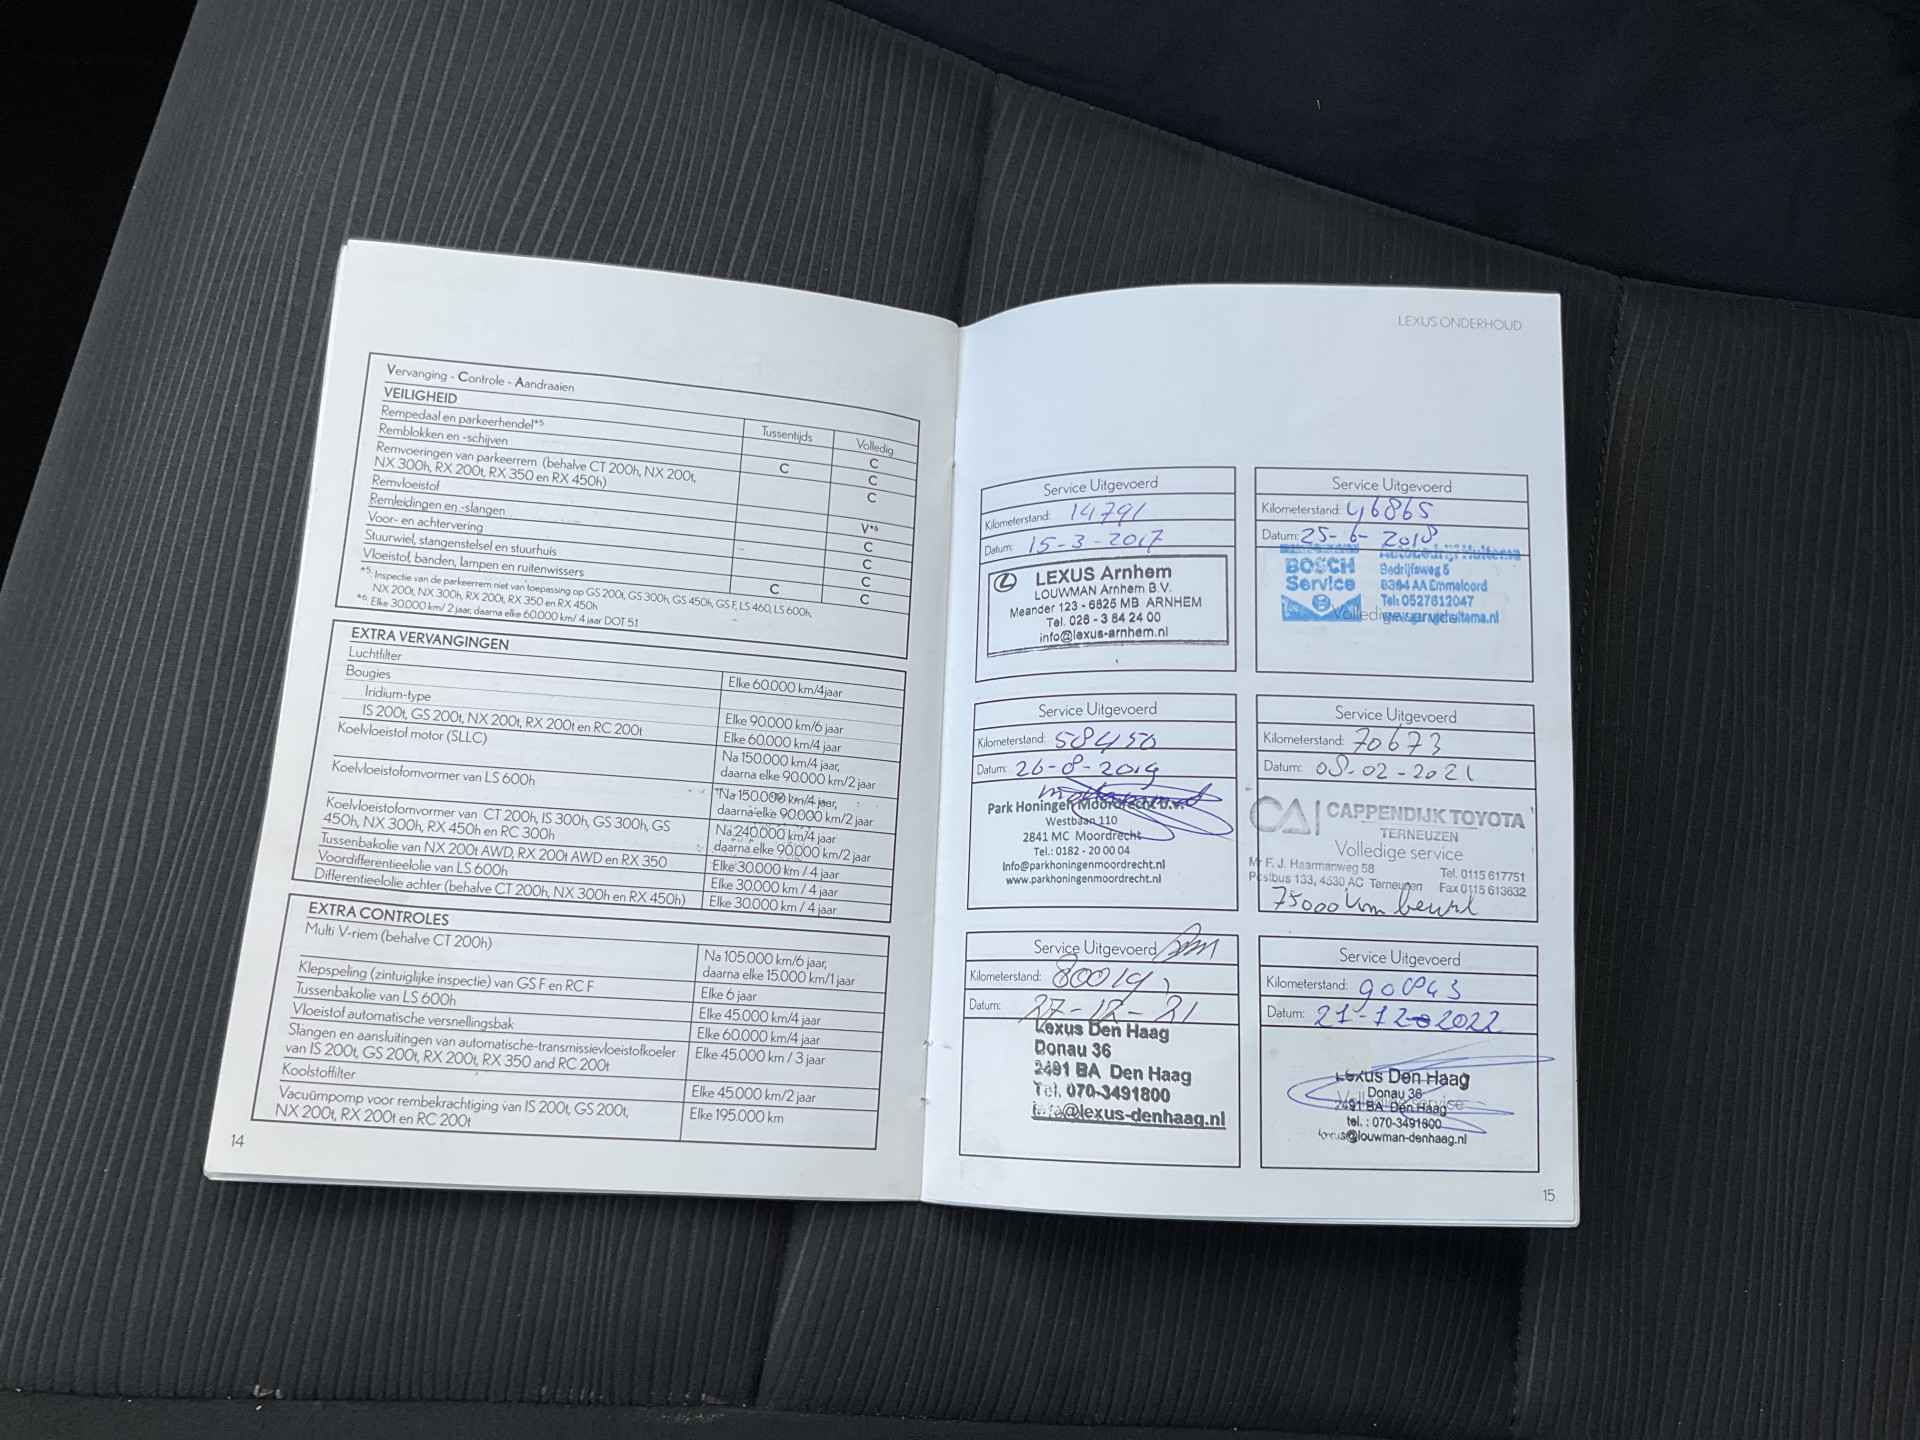 Vervanging - Controle - Aandraaien
VEILIGHEID
Tussentijds Volledig
Rempedaal en parkeerhendel*5 C
Remblokken en -schijven C C
Remvoeringen van parkeerrem (behalve CT 200h, NX 200t,
NX 300h, RX 200t, RX 350 en RX 450h) C
Remvloeistof V*6
Remleidingen en -slangen C
Voor- en achtervering C
Stuurwiel, stangenstelsel en stuurhuis C
Vloeistof, banden, lampen en ruitenwissers C C
*5: Inspectie van de parkeerrem niet van toepassing op GS 200t, GS 300h, GS 450h, GS F, LS 460, LS 600h,
NX 200t, NX 300h, RX 200t, RX 350 en RX 450h
*6: Elke 30.000 km/ 2 jaar, daarna elke 60.000 km/ 4 jaar DOT 5.1
EXTRA VERVANGINGEN
Luchtfilter Elke 60.000 km/4jaar
Bougies
Iridium-type Elke 90.000 km/6 jaar
IS 200t, GS 200t, NX 200t, RX 200t en RC 200t Elke 60.000 km/4 jaar
Koelvloeistof motor (SLLC) Na 150.000 km/4 jaar,
daarna elke 90.000 km/2 jaar
Koelvloeistofomvormer van LS 600h Na 150.000 km/4 jaar,
daarna elke 90.000 km/2 jaar
Koelvloeistofomvormer van CT 200h, IS 300h, GS 300h, GS
450h, NX 300h, RX 450h en RC 300h Na 240.000 km/4 jaar
daarna elke 90.000 km/2 jaar
Tussenbakolie van NX 200t AWD, RX 200t AWD en RX 350 Elke 30.000 km / 4 jaar
Voordifferentieelolie van LS 600h Elke 30.000 km / 4 jaar
Differentieelolie achter (behalve CT 200h, NX 300h en RX 450h) Elke 30.000 km / 4 jaar
EXTRA CONTROLES
Multi V-riem (behalve CT 200h) Na 105.000 km/6 jaar,
daarna elke 15.000 km/1 jaar
Klepspeling (zintuiglijke inspectie) van GS F en RC F Elke 6 jaar
Tussenbakolie van LS 600h Elke 45.000 km/4 jaar
Vloeistof automatische versnellingsbak Elke 60.000 km/4 jaar
Slangen en aansluitingen van automatische-transmissievloeistofkoeler
van IS 200t, GS 200t, RX 200t, RX 350 and RC 200t Elke 45.000 km / 3 jaar
Koolstoffilter Elke 45.000 km/2 jaar
Vacuümpomp voor rembekrachtiging van IS 200t, GS 200t,
NX 200t, RX 200t en RC 200t Elke 195.000 km
14
LEXUS ONDERHOUD
Service Uitgevoerd
Kilometerstand: 14791
Datum: 15-3-2017
LEXUS Arnhem
LOUWMAN Arnhem B.V.
Meander 123 - 6825 MB ARNHEM
Tel. 026 - 3 84 24 00
info@lexus-arnhem.nl
Service Uitgevoerd
Kilometerstand: 46865
Datum: 25-6-2018
BOSCH
Service
Autobedrijf Huitema
Bedrijfsweg 5
8304 AA Emmeloord
Tel: 0527612047
Service Uitgevoerd
Kilometerstand: 58450
Datum: 26-8-2019
Park Honingen Moordrecht b.v.
Westbaan 110
2841 MC Moordrecht
Tel.: 0182 - 20 00 04
Info@parkhoningenmoordrecht.nl
www.parkhoningenmoordrecht.nl
Service Uitgevoerd
Kilometerstand: 70673
Datum: 08-02-2021
CA CAPPENDIJK TOYOTA
TERNEUZEN
Volledige service
Mr F. J. Haarmanweg 58 Tel. 0115 617751
Postbus 133, 4530 AC Terneuzen Fax 0115 613632
75000 km beurt
Service Uitgevoerd
Kilometerstand: 80019
Datum: 27-12-21
Lexus Den Haag
Donau 36
2491 BA Den Haag
Tel. 070-3491800
info@lexus-denhaag.nl
Service Uitgevoerd
Kilometerstand: 90843
Datum: 21-12-2022
Lexus Den Haag
Donau 36
Volledige service
2491 BA Den Haag
tel. : 070-3491800
lexus@louwman-denhaag.nl
15